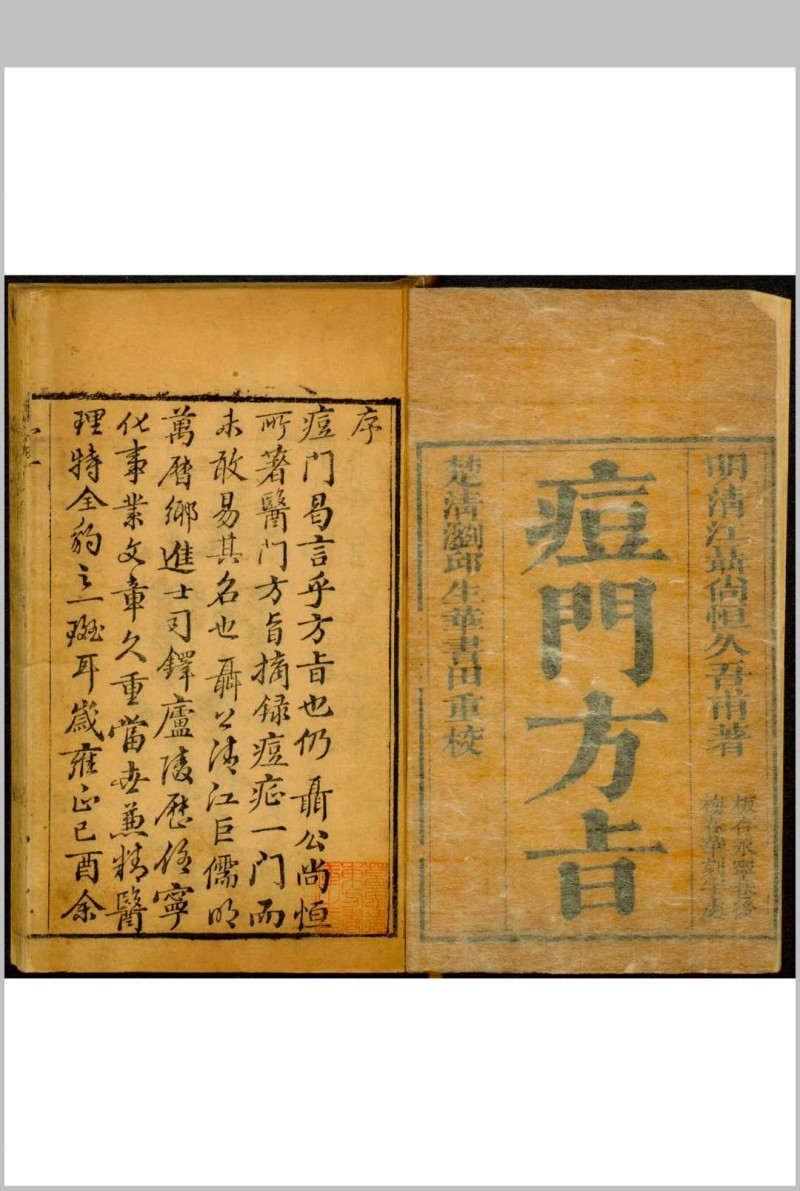 明清江聶尚恒久吾甫著
痘門方㫖
楚清瀏邱生華書田重校
板存永寧巷後
梅春華刻字店
序
痘門曷言乎方㫖也仍聶公尚恒
所著醫門方㫖摘録痘症一門而
未敢易其名也聶公清江巨儒明
萬曆鄉進士司鐸廬陵歷任寧
化事業文章久重當世兼精醫
理特全豹之一斑耳嵗雍正己酉余